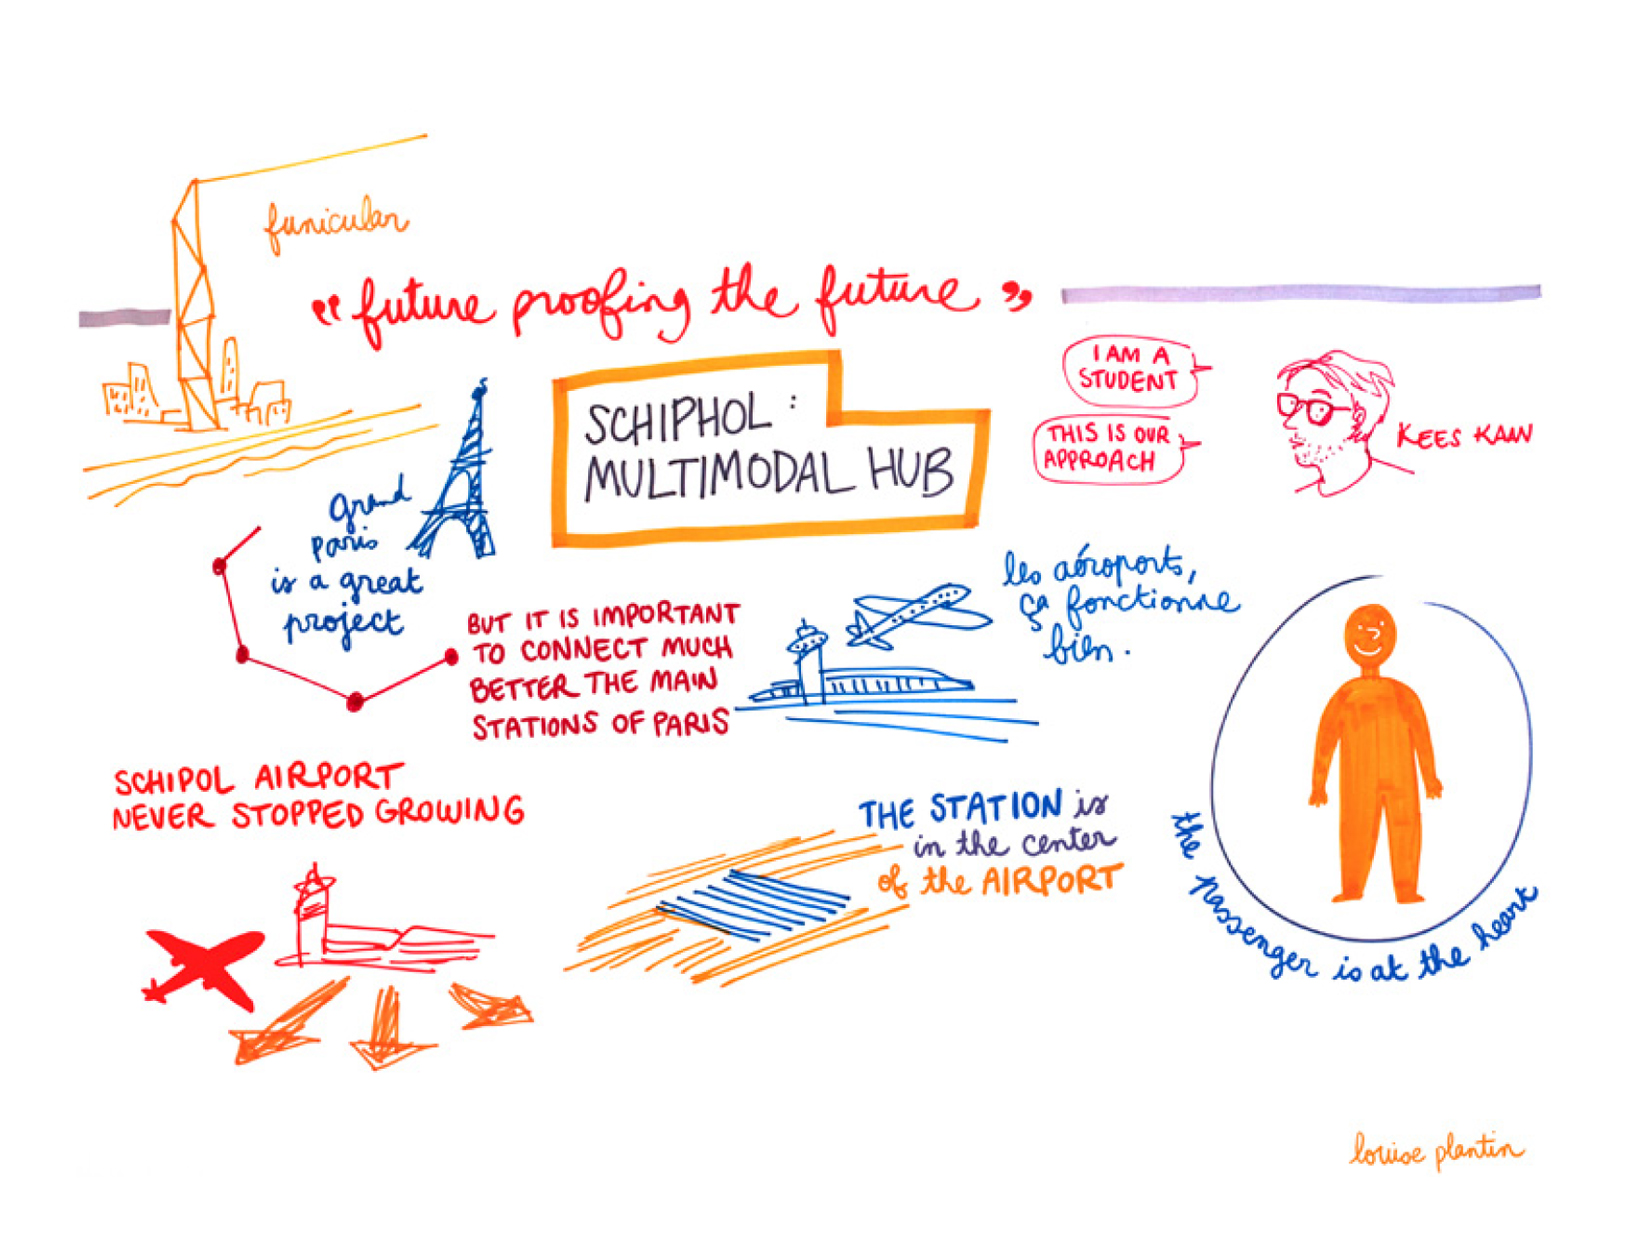 funicular
“future proofing the future”
SCHIPHOL :
MULTIMODAL HUB
I AM A
STUDENT
THIS IS OUR
APPROACH
KEES KAAN
grand
paris
is a great
project
BUT IT IS IMPORTANT
TO CONNECT MUCH
BETTER THE MAIN
STATIONS OF PARIS
les aéroports,
ça fonctionne
bien.
SCHIPOL AIRPORT
NEVER STOPPED GROWING
THE STATION is
in the center
of the AIRPORT
the passenger is at the heart
louise plantin